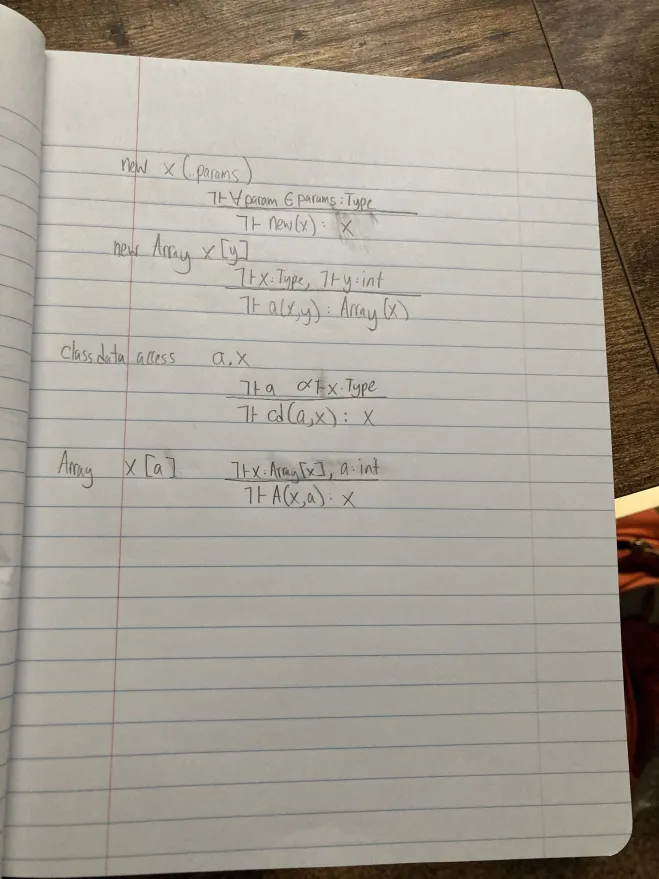 new x (..params)
ꓶ⊢ ∀param ∈ params : Type
ꓶ⊢ new(x) : x
new Array x [y]
ꓶ⊢ x : Type, ꓶ⊢ y : int
ꓶ⊢ a(x,y) : Array(x)
class data access a.x
ꓶ⊢ a α⊢ x : Type
ꓶ⊢ cd(a,x) : x
Array x [a] ꓶ⊢ x : Array[x], a : int
ꓶ⊢ A(x,a) : x